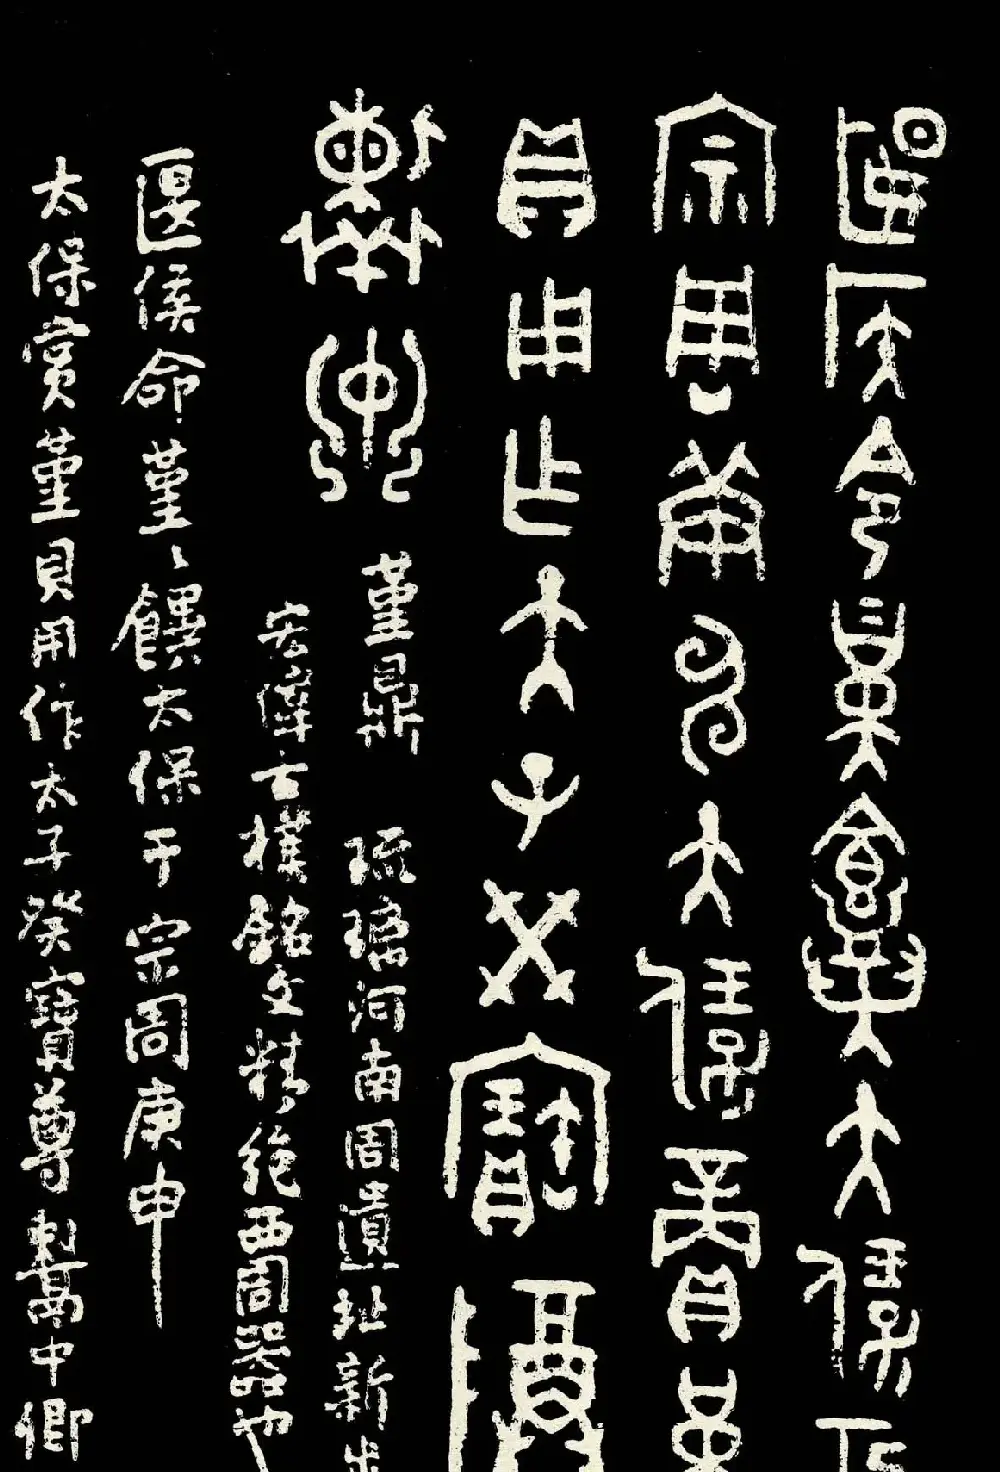 匽侯令堇饌大保
宗周庚申大保賞堇
貝用乍大子癸寶障
堇鼎 琉璃河南周遺址新出
宏偉古樸銘文精絕西周器也
匽侯命堇〻饌太保于宗周庚申
太保賞堇貝用作太子癸寶尊 中卿